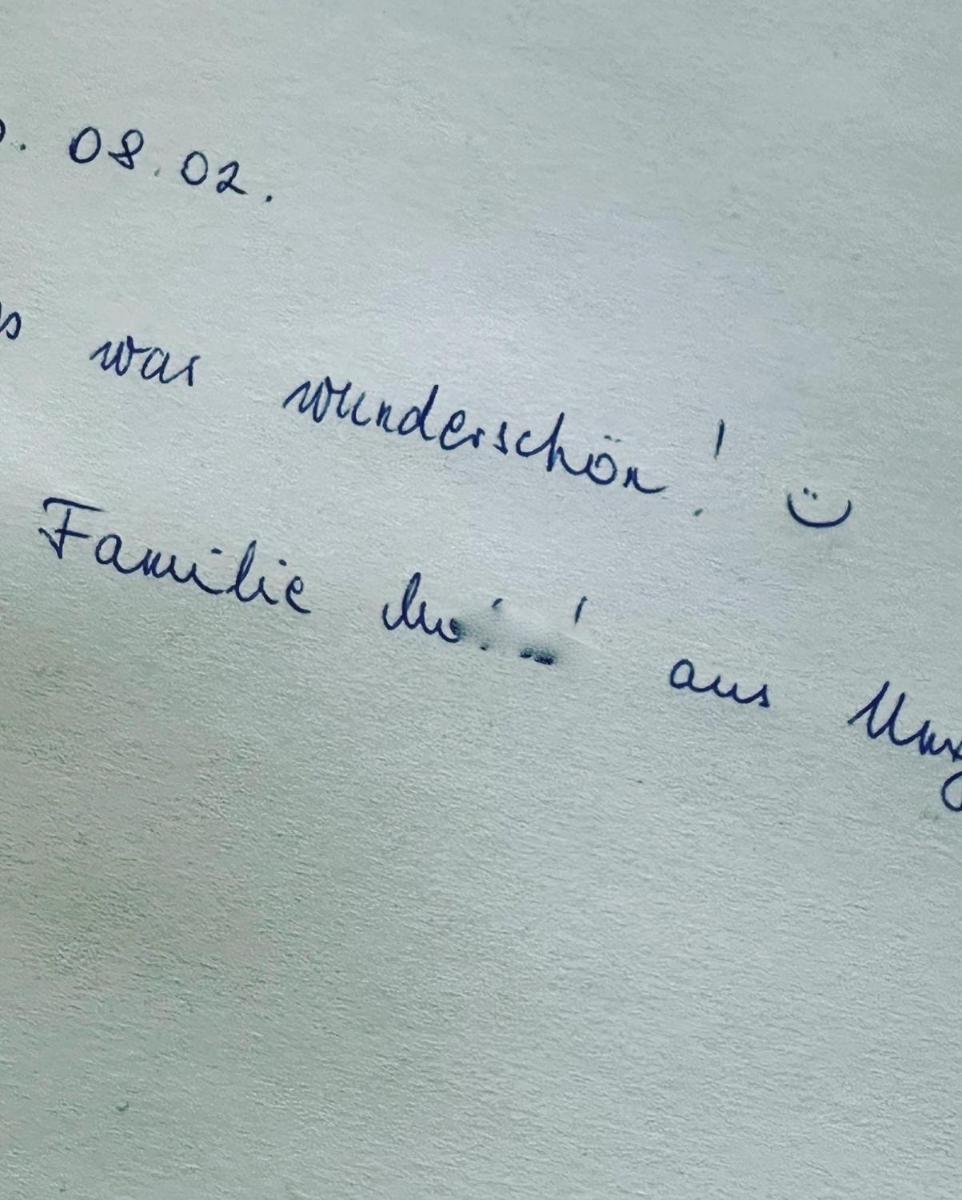 08.02.
was wunderschön! :)
Familie aus